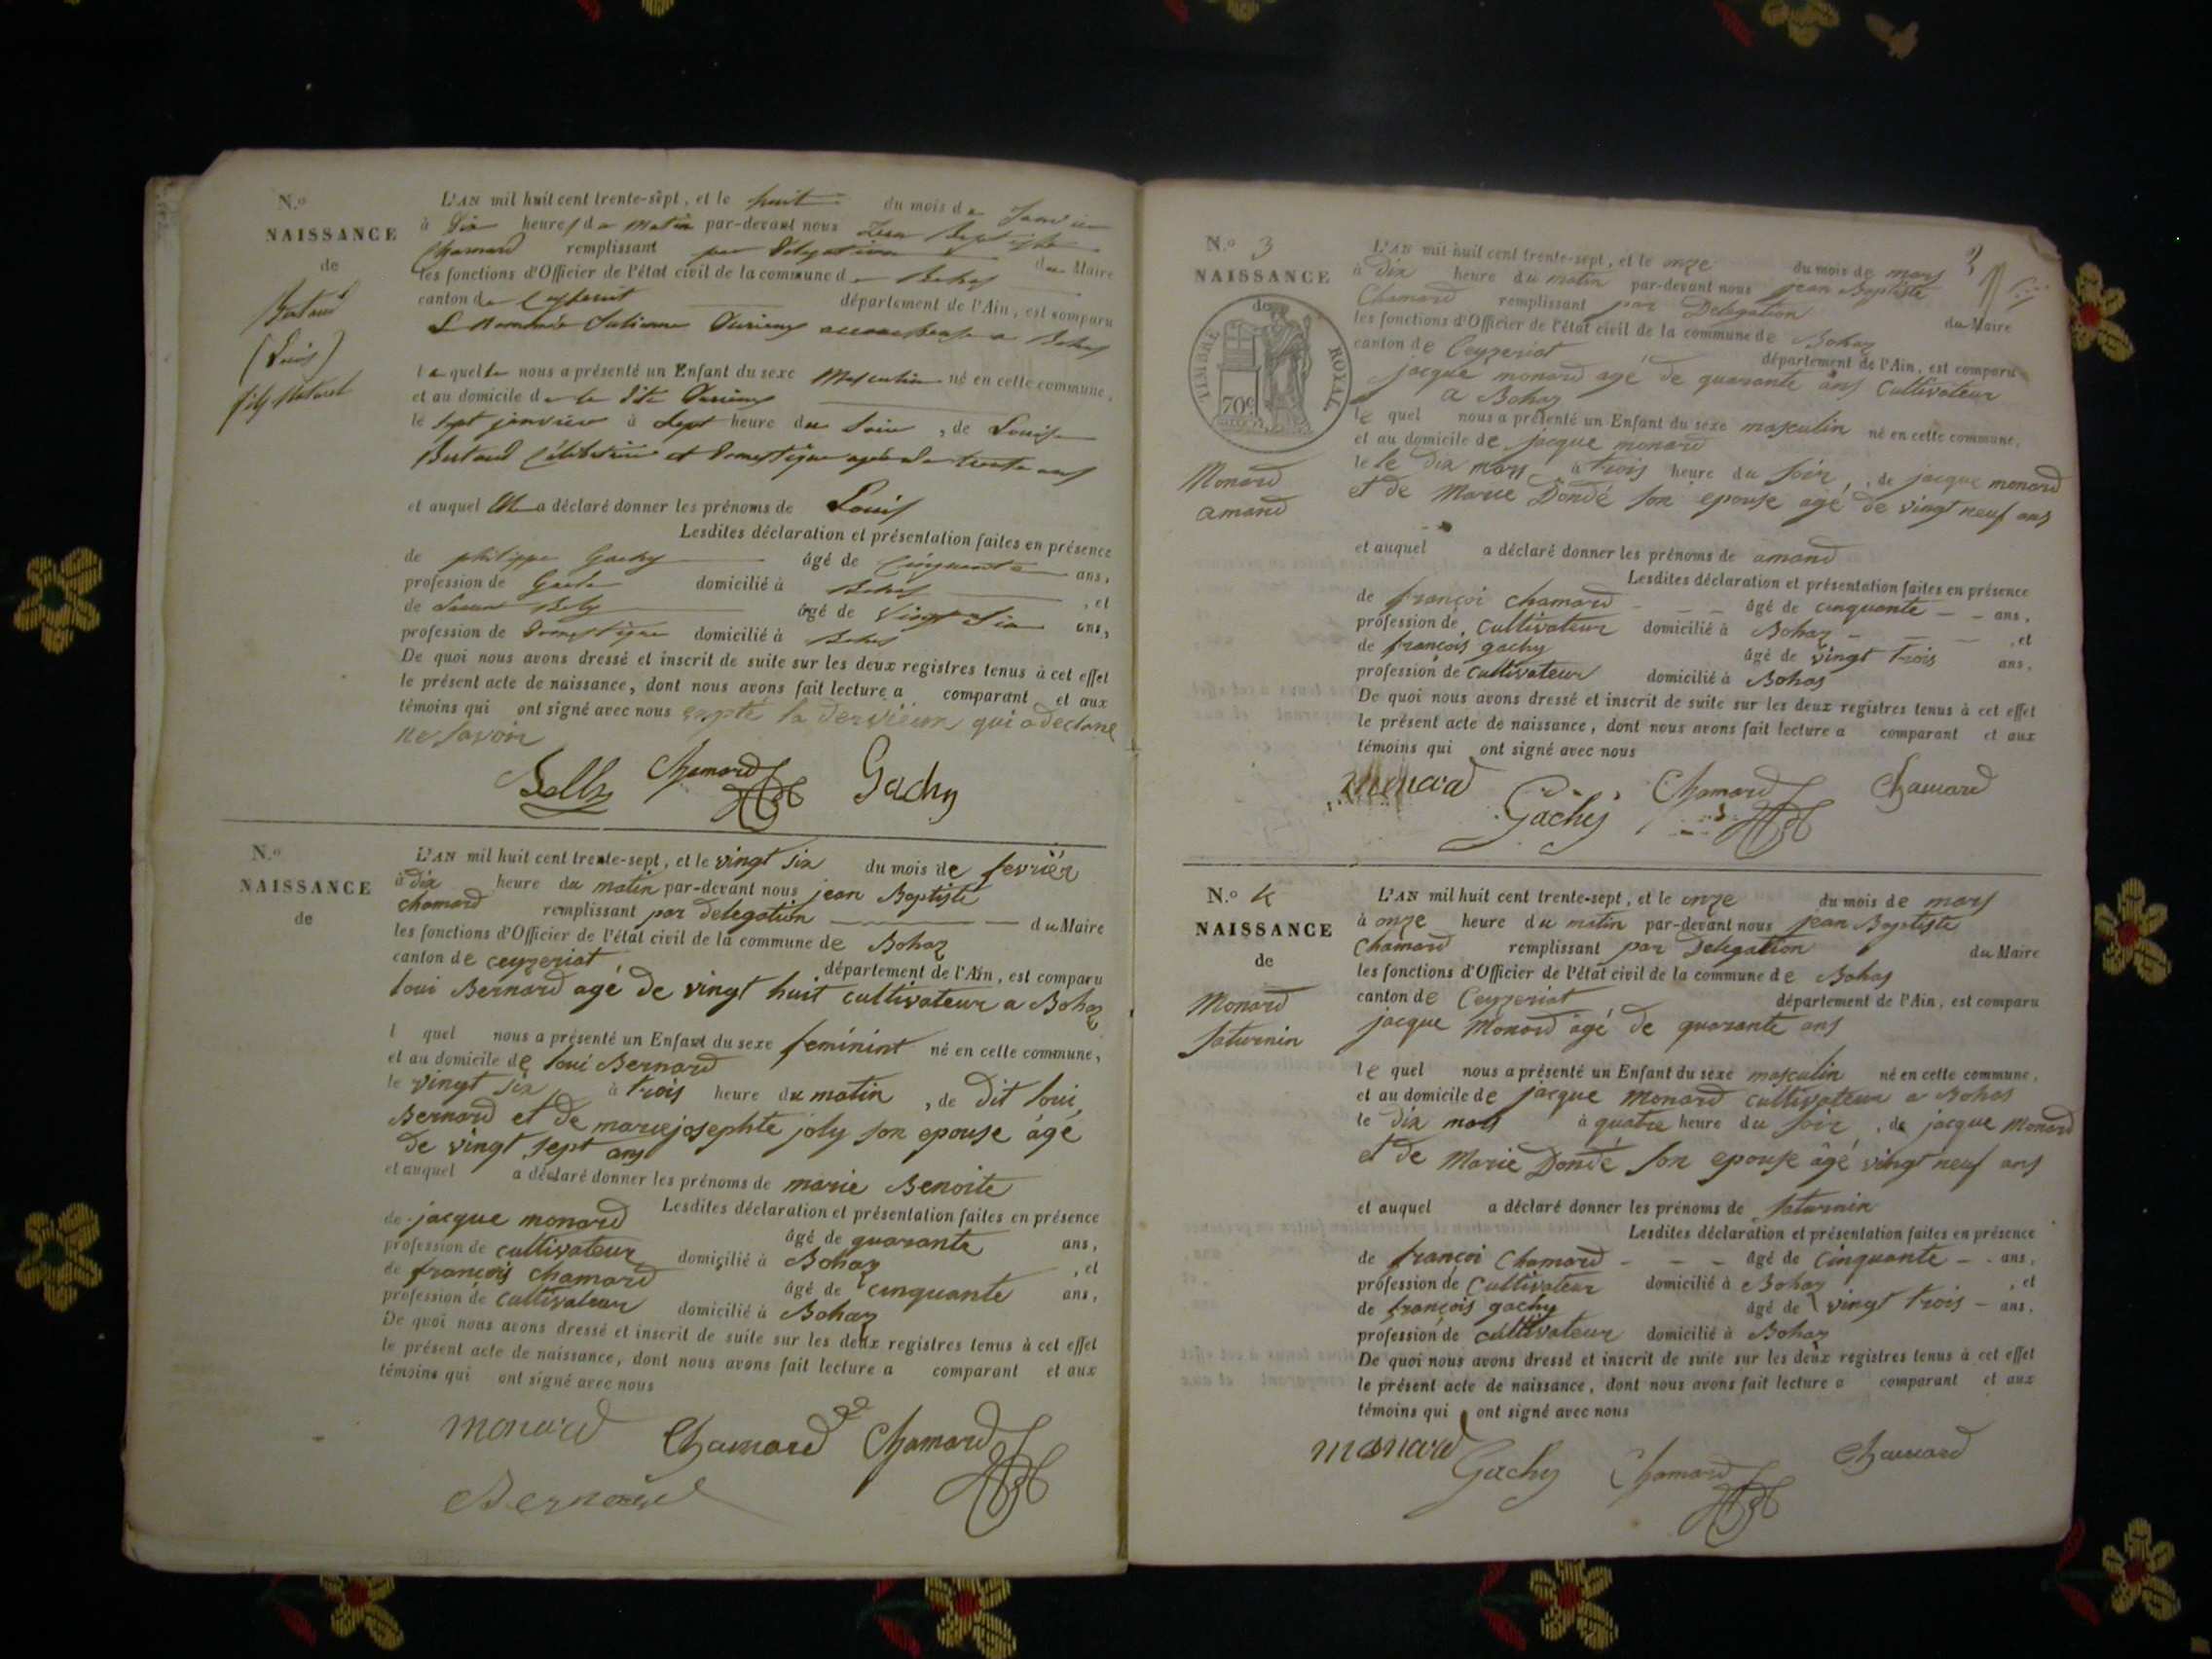 N.o
NAISSANCE
de
(Louis)
fils Naturel
L'AN mil huit cent trente-sept, et le huit du mois de Janvier
à Dix heures du Matin par-devant nous Jean Baptiste
Chamard remplissant par Délégation du Maire
les fonctions d'Officier de l'état civil de la commune de Bohas
canton de département de l'Ain, est comparu
La Nommée Julienne accoucheuse a Bohas
laquelle nous a présenté un Enfant du sexe Masculin né en cette commune,
et au domicile de la dite
le sept janvier à sept heure du soir, de Louise
Célibataire et Domestique agée de trente ans
et auquel Elle a déclaré donner les prénoms de Louis
Lesdites déclaration et présentation faites en présence
de philippe Gachy âgé de Cinquante ans,
profession de Garde domicilié à Bohas, et
de âgé de Vingt Six ans,
profession de Domestique domicilié à Bohas
De quoi nous avons dressé et inscrit de suite sur les deux registres tenus à cet effet
le présent acte de naissance, dont nous avons fait lecture a comparant et aux
témoins qui ont signé avec nous qui a declaré
ne savoir
Chamard Gachy
N.o
NAISSANCE
de
L'AN mil huit cent trente-sept, et le vingt six du mois de fevrier
à dix heure du matin par-devant nous jean Baptiste
chamard remplissant par delegation du Maire
les fonctions d'Officier de l'état civil de la commune de Bohaz
canton de ceyzeriat département de l'Ain, est comparu
loui Bernard agé de vingt huit cultivateur a Bohaz
l quel nous a présenté un Enfant du sexe feminint né en cette commune,
et au domicile de loui Bernard
le vingt six à trois heure du matin, de dit loui
Bernard et de marie josephte joly son epouse âgé
de vingt sept ans
et auquel a déclaré donner les prénoms de marie Benoite
Lesdites déclaration et présentation faites en présence
de jacque monard âgé de quarante ans,
profession de cultivateur domicilié à Bohaz, et
de françois chamard âgé de cinquante ans,
profession de cultivateur domicilié à Bohaz
De quoi nous avons dressé et inscrit de suite sur les deux registres tenus à cet effet
le présent acte de naissance, dont nous avons fait lecture a comparant et aux
témoins qui ont signé avec nous
monard Chamard Chamard
Bernard
N.o 3
NAISSANCE
de
TIMBRE ROYAL
70c
Monard
amand
L'AN mil huit cent trente-sept, et le onze du mois de mars
à dix heure du matin par-devant nous jean Baptiste
Chamard remplissant par Delegation du Maire
les fonctions d'Officier de l'état civil de la commune de Bohaz
canton de Ceyzeriat département de l'Ain, est comparu
jacque monard agé de quarante ans Cultivateur
a Bohaz
le quel nous a présenté un Enfant du sexe masculin né en cette commune,
et au domicile de jacque monard
le le dix mars à trois heure du soir, de jacque monard
et de Marie Dondé son epouse agé de vingt neuf ans
et auquel a déclaré donner les prénoms de amand
Lesdites déclaration et présentation faites en présence
de françoi chamard âgé de cinquante ans,
profession de cultivateur domicilié à Bohaz, et
de françois gachy âgé de vingt trois ans,
profession de cultivateur domicilié à Bohas
De quoi nous avons dressé et inscrit de suite sur les deux registres tenus à cet effet
le présent acte de naissance, dont nous avons fait lecture a comparant et aux
témoins qui ont signé avec nous
monard Gachy Chamard Chamard
N.o 4
NAISSANCE
de
Monard
saturnin
L'AN mil huit cent trente-sept, et le onze du mois de mars
à onze heure du matin par-devant nous jean Baptiste
Chamard remplissant par Delegation du Maire
les fonctions d'Officier de l'état civil de la commune de Bohas
canton de Ceyzeriat département de l'Ain, est comparu
jacque Monard âgé de quarante ans
le quel nous a présenté un Enfant du sexe masculin né en cette commune,
et au domicile de jacque Monard cultivateur a Bohas
le dix mars à quatre heure du soir, de jacque Monard
et de Marie Dondé son epouse âgé vingt neuf ans
et auquel a déclaré donner les prénoms de saturnin
Lesdites déclaration et présentation faites en présence
de françoi Chamard âgé de cinquante ans,
profession de Cultivateur domicilié à Bohaz, et
de françois gachy âgé de vingt trois ans,
profession de cultivateur domicilié à Bohaz
De quoi nous avons dressé et inscrit de suite sur les deux registres tenus à cet effet
le présent acte de naissance, dont nous avons fait lecture a comparant et aux
témoins qui ont signé avec nous
monard Gachy Chamard Chamard